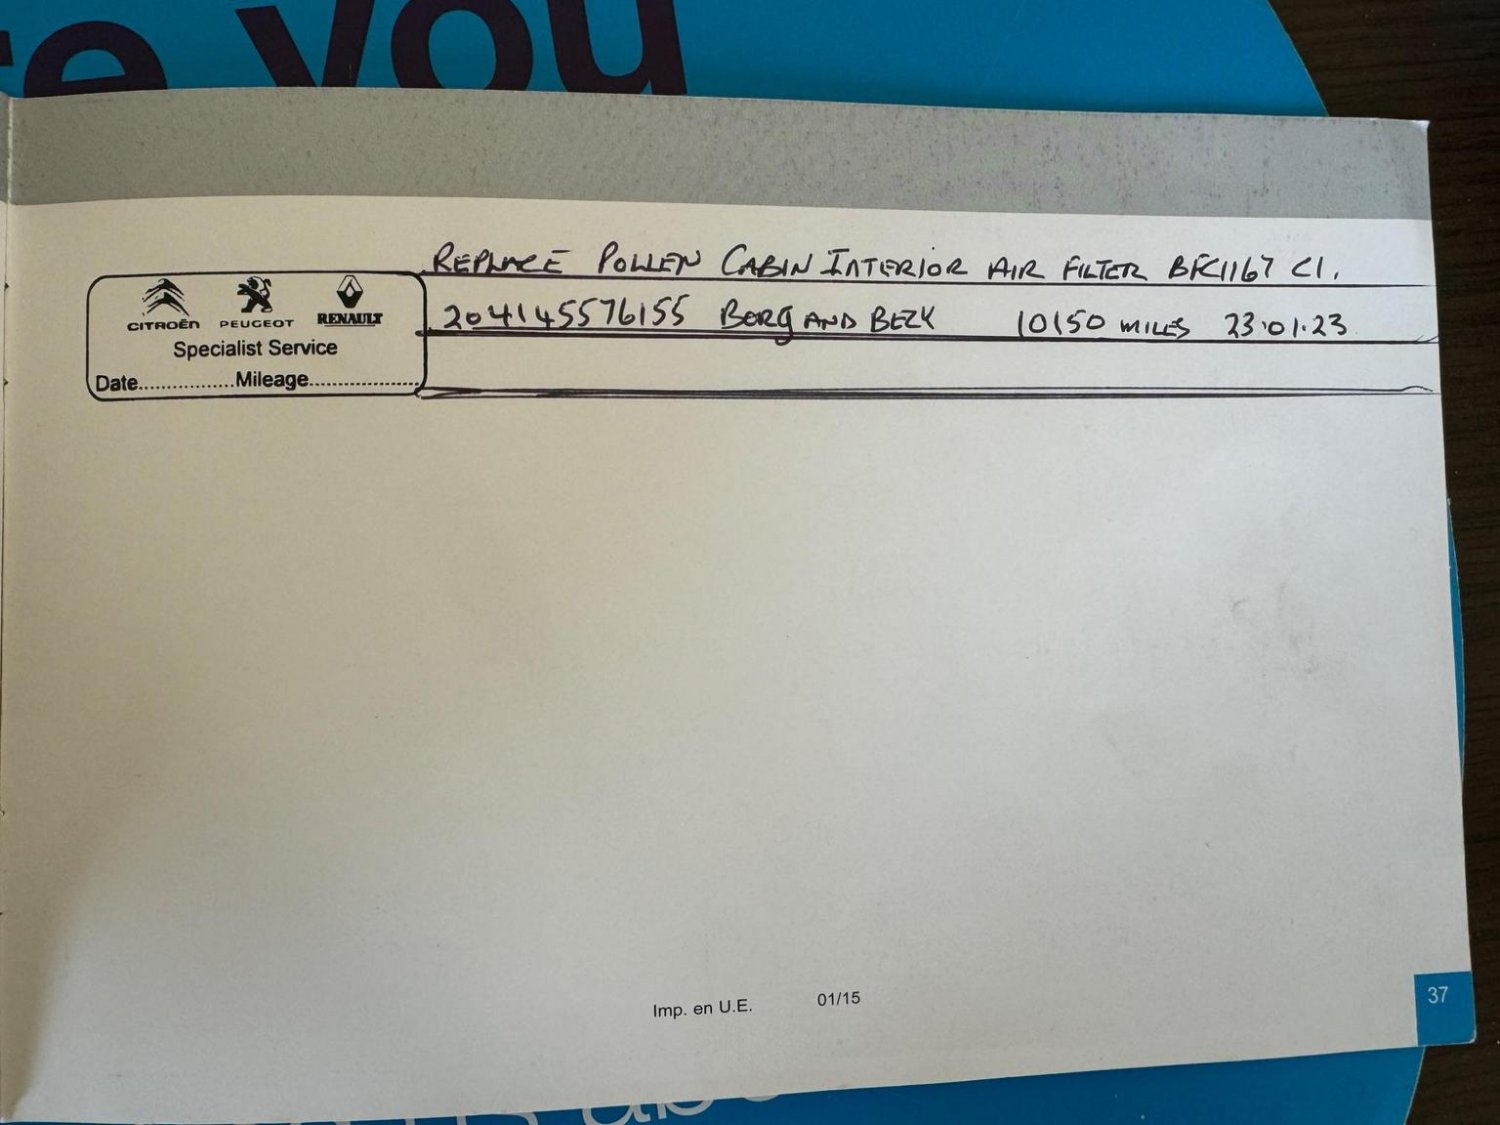 re you
REPLACE POLLEN CABIN INTERIOR AIR FILTER BFC1167 C1.
204145576155 BORG AND BECK 10150 MILES 23.01.23
CITROËN PEUGEOT RENAULT
Specialist Service
Date................Mileage....................
Imp. en U.E. 01/15
37